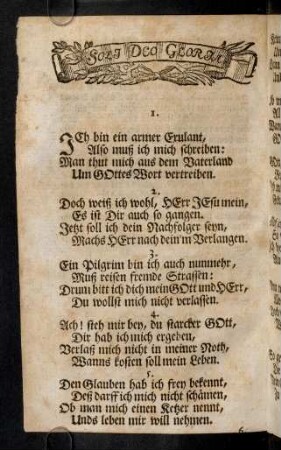 SOLI DEO GLORIA
1.
ICh bin ein armer Exulant,
Also muß ich mich schreiben:
Man thut mich aus dem Vaterland
Um GOttes Wort vertreiben.
2.
Doch weiß ich wohl, HErr JEsu mein,
Es ist Dir auch so gangen.
Jetzt soll ich dein Nachfolger seyn,
Machs HErr nach dein'm Verlangen.
3.
Ein Pilgrim bin ich auch nunmehr,
Muß reisen fremde Strassen:
Drum bitt ich dich mein GOtt und HErr,
Du wollst mich nicht verlassen.
4.
Ach! steh mir bey, du starcker GOtt,
Dir hab ich mich ergeben,
Verlaß mich nicht in meiner Noth,
Wanns kosten soll mein Leben.
5.
Den Glauben hab ich frey bekennt,
Deß darff ich mich nicht schämen,
Ob man mich einen Ketzer nennt,
Unds leben mir will nehmen.
6.